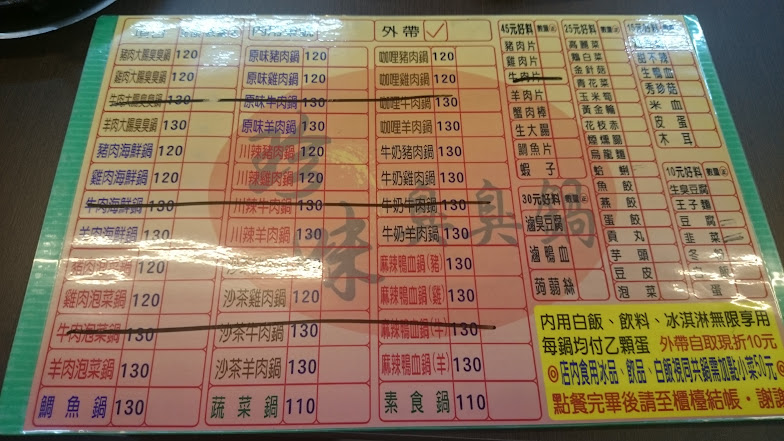 外帶
豬肉大腸臭臭鍋 120 原味豬肉鍋 120 咖哩豬肉鍋 120
雞肉大腸臭臭鍋 120 原味雞肉鍋 120 咖哩雞肉鍋 120
牛肉大腸臭臭鍋 130 原味牛肉鍋 130 咖哩牛肉鍋 130
羊肉大腸臭臭鍋 130 原味羊肉鍋 130 咖哩羊肉鍋 130
豬肉海鮮鍋 120 川辣豬肉鍋 120 牛奶豬肉鍋 130
雞肉海鮮鍋 120 川辣雞肉鍋 120 牛奶雞肉鍋 130
牛肉海鮮鍋 130 川辣牛肉鍋 130 牛奶牛肉鍋 130
羊肉海鮮鍋 130 川辣羊肉鍋 130 牛奶羊肉鍋 130
豬肉泡菜鍋 120 沙茶豬肉鍋 120 麻辣鴨血鍋(豬) 130
雞肉泡菜鍋 120 沙茶雞肉鍋 120 麻辣鴨血鍋(雞) 130
牛肉泡菜鍋 130 沙茶牛肉鍋 130 麻辣鴨血鍋(牛) 130
羊肉泡菜鍋 130 沙茶羊肉鍋 130 麻辣鴨血鍋(羊) 130
鯛魚鍋 130 蔬菜鍋 110 素食鍋 110
45元好料
豬肉片
雞肉片
牛肉片
羊肉片
蟹肉棒
生大腸
鯛魚片
蝦子
30元好料
滷臭豆腐
滷鴨血
蒟蒻絲
25元好料
高麗菜
鵝白菜
金針菇
青花菜
玉米筍
黃金輪
花枝丸
煙燻腸
烏龍麵
蛤蜊
魚餃
燕餃
蛋餃
貢丸
芋頭
豆皮
泡菜
生鴨血
秀珍菇
米血
皮蛋
木耳
10元好料
生臭豆腐
王子麵
豆腐
韭菜
冬粉
白飯
雞蛋
珍味 臭臭鍋
內用白飯、飲料、冰淇淋無限享用
每鍋均付乙顆蛋 外帶自取現折10元
◎店內食用冰品、飲品、白飯視同共鍋需加點小菜50元◎
點餐完畢後請至櫃檯結帳，謝謝